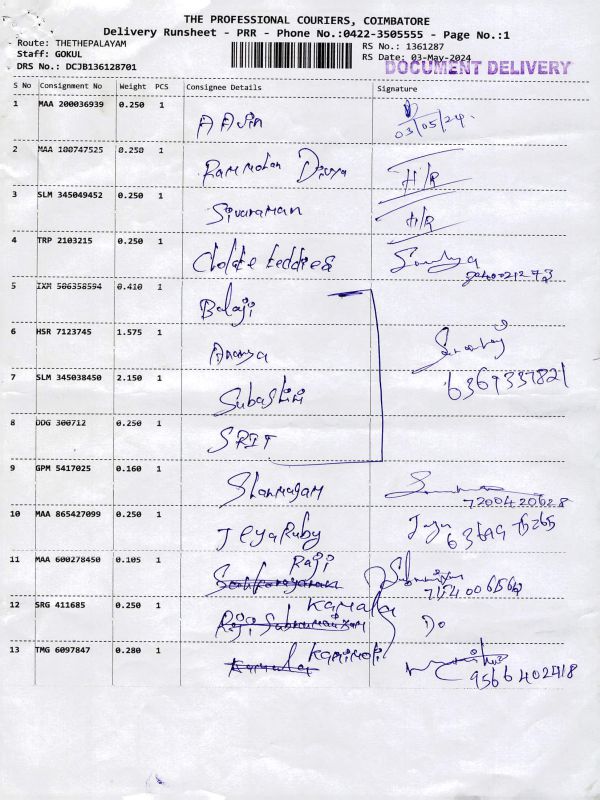 THE PROFESSIONAL COURIERS, COIMBATORE
Delivery Runsheet - PRR - Phone No.:0422-3505555 - Page No.:1
Route: THETHEPALAYAM
RS No.: 1361287
Staff: GOKUL
RS Date: 03-May-2024
DRS No.: DCJB136128701
DOCUMENT DELIVERY
S No Consignment No Weight PCS Consignee Details Signature
1 MAA 200036939 0.250 1 AAJin
03/05/24.
2 MAA 100747525 0.250 1 Ram mohan Divya H/R
3 SLM 345049452 0.250 1 Sivaraman H/R
4 TRP 2103215 0.250 1 teddies
5 IXM 506358594 0.410 1 Balaji
6 HSR 7123745 1.575 1 Ananya
7 SLM 345038450 2.150 1 Subashini 6369337821
8 DDG 300712 0.250 1 SRIT
9 GPM 5417025 0.160 1 Shanmugam
7200420628
10 MAA 865427099 0.250 1 JeyaRuby
11 MAA 600278450 0.105 1 Raji
12 SRG 411685 0.250 1 Kamala Do
13 TMG 6097847 0.280 1 Kanimoli
9566402418